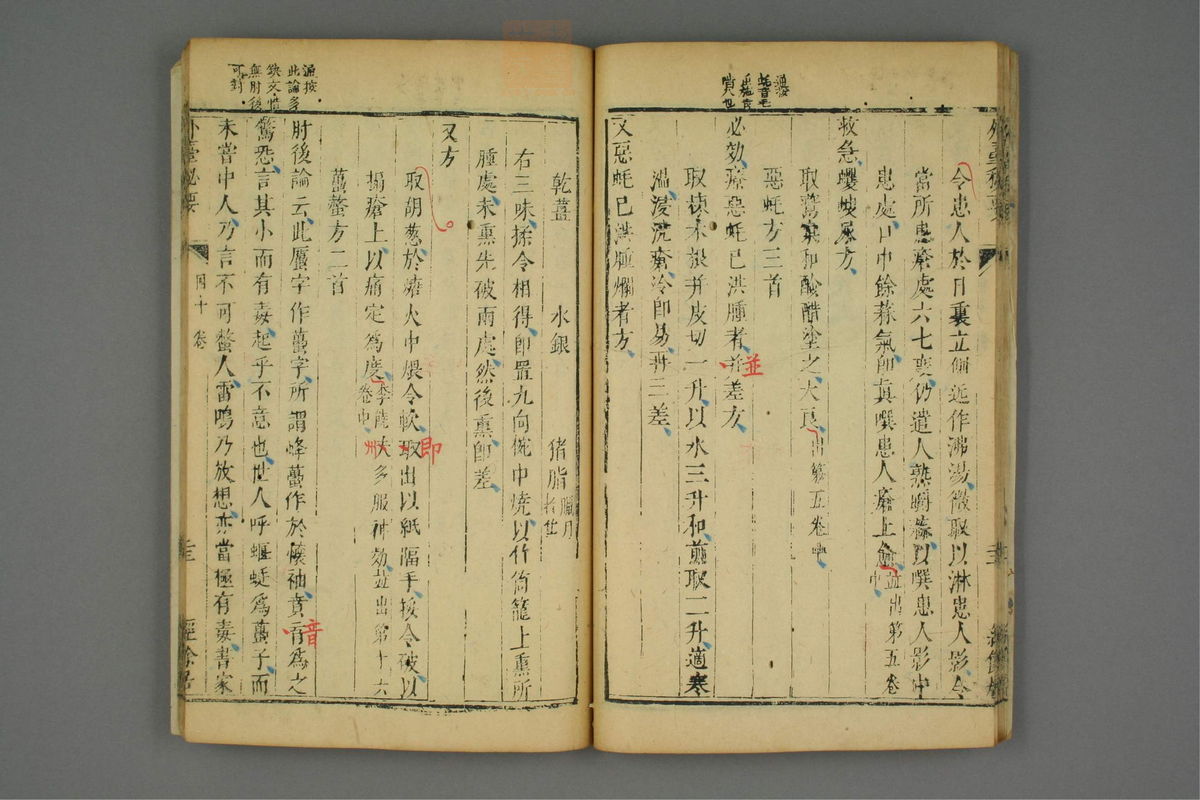 通按
蚝音毛
毛蟲長
嘖人也
令患人於日裏立側近作沸湯微取以淋患人影令
當所患瘡處六七變仍遣人熟嚼蒜以噀患人影中
患處口中餘蒜氣即真噀患人瘡上愈並出第五卷中
救急蠼螋尿方
取鷰窠和酸醋塗之大良出第五卷中
惡蚝方三首
必効療惡蚝已洪腫者並差方
並
取楝木穀并皮切一升以水三升和煎取二升適寒
溫浸洗瘡冷即易再三差
又惡蚝已洪腫爛者方
乾薑 水銀 猪脂臘月者佳
右三味揉令相得即置丸向椀中燒以竹筒籠上熏所
腫處未熏先破兩處然後熏即差
又方
取胡葱於煻火中煨令軟取出以紙隔手挼令破以
即
搨瘡上以痛定為度李饒州云多服神効並出第十六卷中
州
蠆螫方二首
肘後論云此蜃字作蠆字所謂蜂蠆作於懷袖賁育為之
音
驚恐言其小而有毒起乎不意也世人呼蝘蜓為蠆子而
未嘗中人乃言不可螫人雷鳴乃放想亦當極有毒書家
通按
此論多
缺文惜
無肘後
可對
外臺秘要 四十卷 經餘居